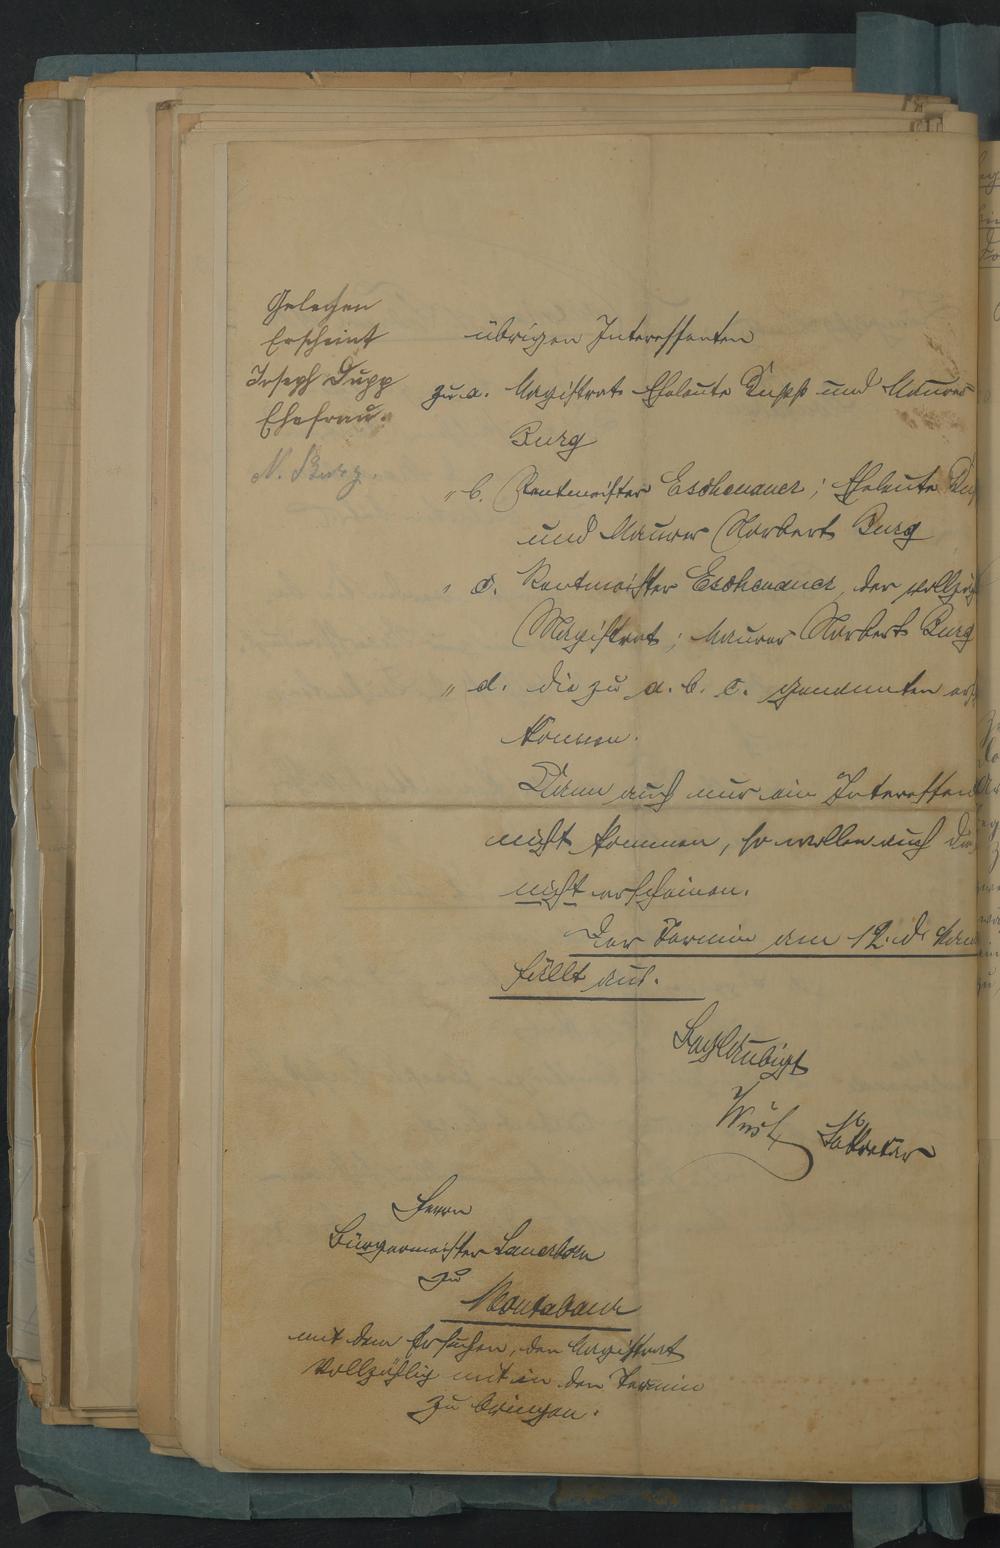 Gelesen
Erscheint
Joseph Dupp
Ehefrau.
N. Burg.
übrigen Interessenten
zu a. Magistrat Eheleute Dupp und Maurer
Burg
" b. Rentmeister Eschenauer; Eheleute Du
und Maurer Norbert Burg
" c. Rentmeister Eschenauer, der vollzäh
Magistrat; Maurer Norbert Burg
" d. die zu a. b. c. genannten
kommen.
Kann auch nur ein Interessen
nicht kommen, so wollen auch die
nicht erscheinen.
Der Termin am 12. d.
fällt aus.
Beglaubigt
Sekretär
Herrn
Bürgermeister Sauerborn
zu
Montabaur
mit dem Ersuchen, den Magistrat
vollzählig mit in den Termin
zu bringen.